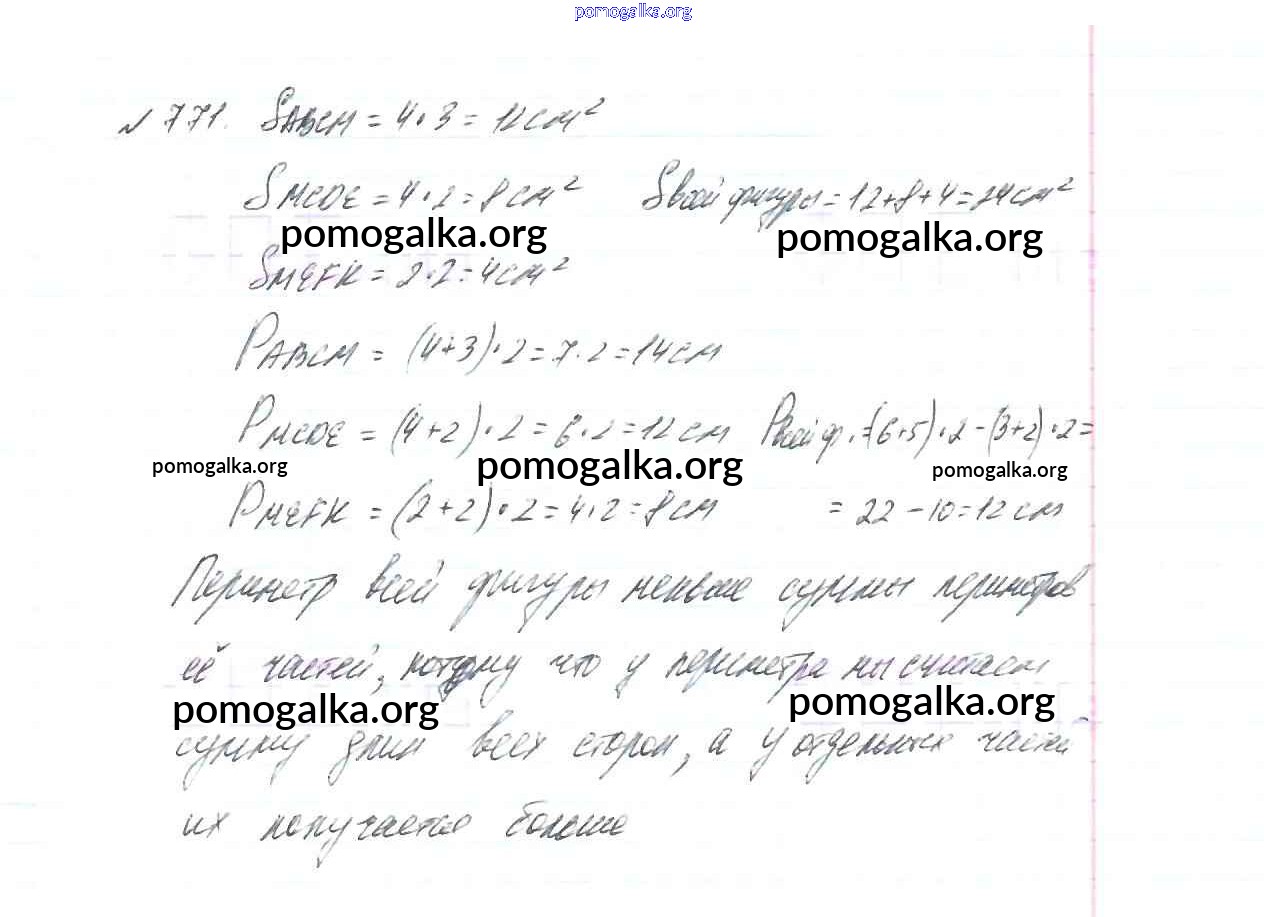 pomogalka.org
№ 771. SABCM = 4 · 3 = 12 см²
SMCDE = 4 · 2 = 8 см² Sвсей фигуры = 12 + 8 + 4 = 24 см²
pomogalka.org pomogalka.org
SMEFK = 2 · 2 = 4 см²
PABCM = (4+3) · 2 = 7 · 2 = 14 см
PMCDE = (4+2) · 2 = 6 · 2 = 12 см Pвсей ф. = (6+5) · 2 - (3+2) · 2 =
pomogalka.org pomogalka.org pomogalka.org
PMEFK = (2+2) · 2 = 4 · 2 = 8 см = 22 - 10 = 12 см
Периметр всей фигуры меньше суммы периметров
её частей, потому что у периметра мы считаем
pomogalka.org pomogalka.org
сумму длин всех сторон, а у отдельных частей
их получается больше